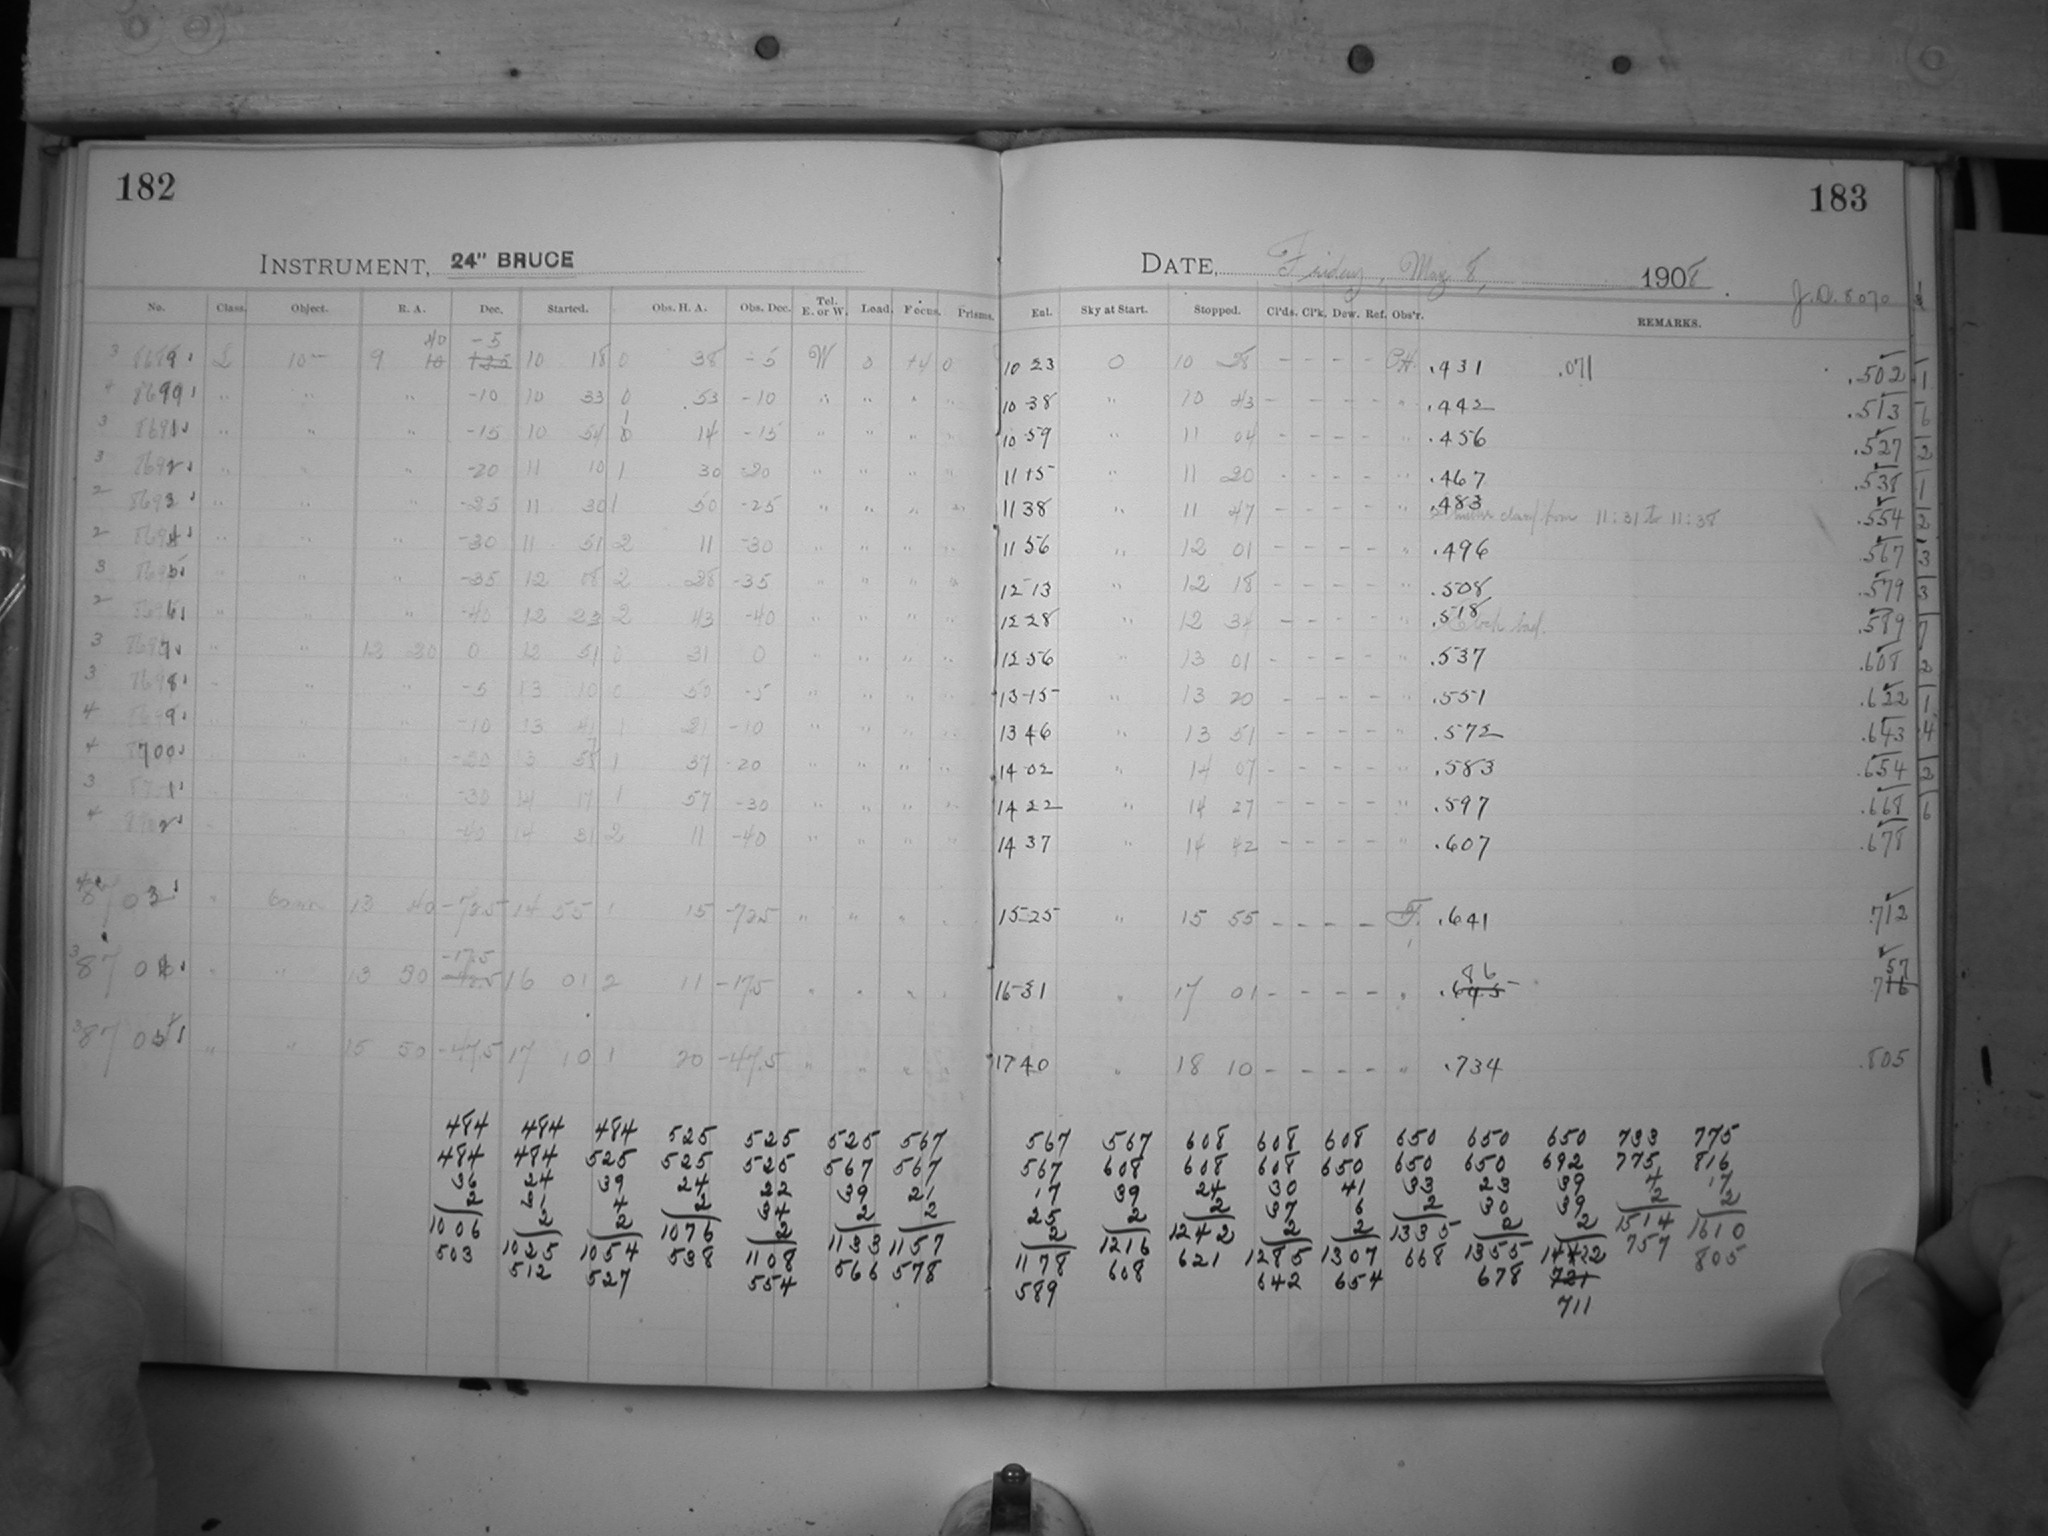 182
183
INSTRUMENT, 24" BRUCE
DATE, Friday, May 8, 1908
J.D. 8070
No. Class. Object. R. A. Dec. Started. Obs. H. A. Obs. Dec. Tel. E. or W. Load. Focus. Prisms. Eal. Sky at Start. Stopped. Cl'ds. Cl'k. Dew. Ref. Obs'r. REMARKS.
40 -5
3 8689 L 10m 9 10 +25 10 18 0 38 -5 W 0 +4 0 10 23 0 10 28 - - - - .431 .071 .502 1
4 8690 " " " -10 10 33 0 53 -10 " " " " 10 38 " 10 43 - - - - " .442 .513 6
3 8691 " " " -15 10 54 1 14 -15 " " " " 10 59 " 11 04 - - - - " .456 .527 2
3 8692 " " " -20 11 10 1 30 -20 " " " " 11 15 " 11 20 - - - - " .467 .538 1
2 8693 " " " -25 11 30 1 50 -25 " " " " 11 38 " 11 47 - - - - " .483 from 11:31 to 11:38 .554 2
2 8694 " " " -30 11 51 2 11 -30 " " " " 11 56 " 12 01 - - - - " .496 .567 3
3 8695 " " " -35 12 08 2 28 -35 " " " " 12 13 " 12 18 - - - - " .508 .579 3
2 8696 " " " -40 12 23 2 43 -40 " " " " 12 28 " 12 34 - - - - " .518 Clock bad. .589 7
3 8697 " " 12 20 0 12 51 0 31 0 " " " " 12 56 " 13 01 - - - - " .537 .608 2
3 8698 " " " -5 13 10 0 50 -5 " " " " 13 15 " 13 20 - - - - " .551 .622 1
4 8699 " " -10 13 41 1 21 -10 " " " " 13 46 " 13 51 - - - - " .572 .643 4
4 8700 " " " -20 13 58 1 37 -20 " " " " 14 02 " 14 07 - - - - " .583 .654 2
3 8701 " " -30 14 17 1 57 -30 " " " " 14 22 " 14 27 - - - - " .597 .668 6
4 8702 " " -40 14 31 2 11 -40 " " " " 14 37 " 14 42 - - - - " .607 .678
4 8703 " 60m 13 40 -72.5 14 55 1 15 -72.5 " " " 15 25 " 15 55 - - - - F. .641 .712
-17.5 86 57
3 8704 " " 13 50 16 01 2 11 -17.5 " " " 16 31 " 17 01 - - - - " .645 716
3 8705 " " 15 50 -47.5 17 10 1 20 -47.5 " " " 17 40 " 18 10 - - - - " .734 .805
484 484 484 525 525 525 567 567 567 608 608 608 650 650 650 733 775
484 484 525 525 525 567 567 567 608 608 608 650 650 650 692 775 816
36 24 39 24 22 39 21 17 39 24 30 41 33 23 39 4 17
2 31 4 2 34 2 2 25 2 2 37 6 2 30 39 2 2
1006 2 2 1076 2 1133 1157 2 1216 1242 2 2 1335 2 2 1514 1610
503 1025 1054 538 1108 566 578 1178 608 621 1285 1307 668 1355 1422 757 805
512 527 554 589 642 654 678 721
711